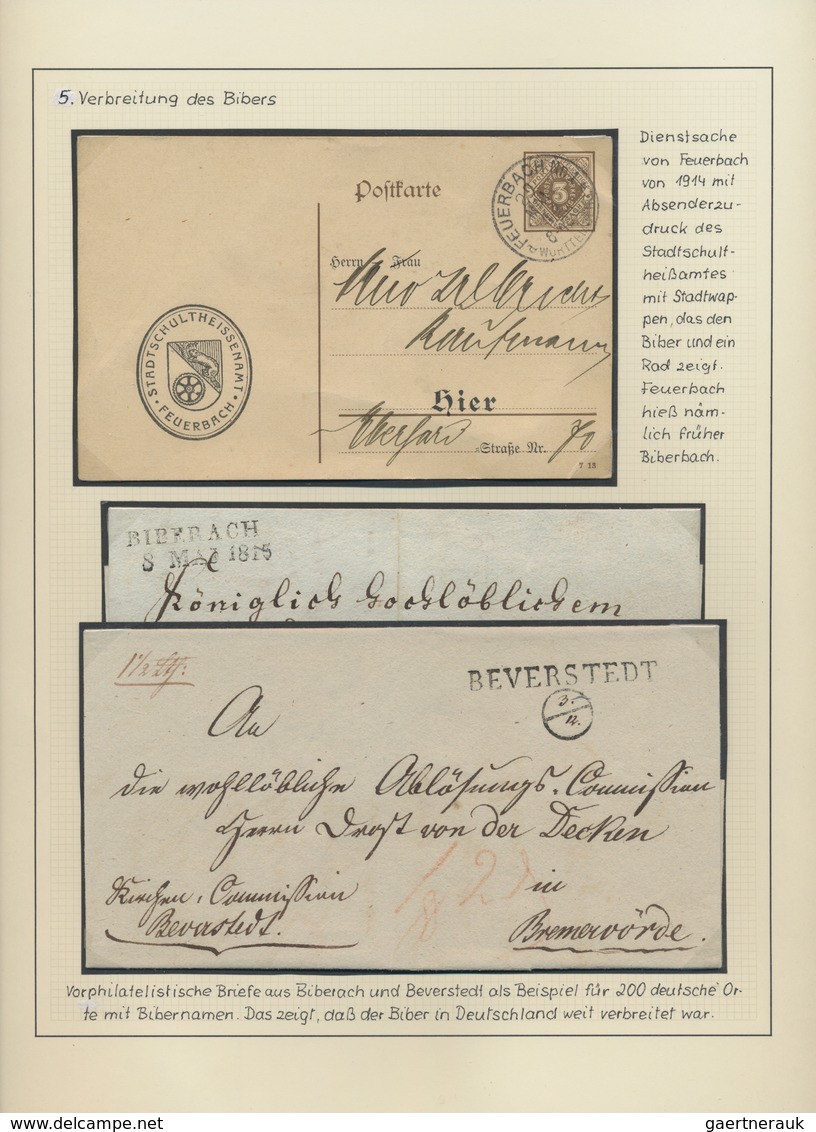 5. Verbreitung des Bibers
Dienstsache
von Feuerbach
von 1914 mit
Absenderzu-
druck des
Stadtschult-
heißamtes
mit Stadtwap-
pen, das den
Biber und ein
Rad zeigt.
Feuerbach
hieß näm-
lich früher
Biberbach.
Postkarte
FEUERBACH
WÜRTTEMB
3
Herrn Frau
Albrecht
Kaufmann
Hier
Eberhard -Straße Nr. 70
7 13
STADTSCHULTHEISSENAMT
FEUERBACH
BIBERACH
8 MAI 1815
Königlich hochlöblichem
1 1/2
BEVERSTEDT
3.
12.
An
die wohllöbliche Ablösungs-Commission
Herrn Drost von der Decken
in
Kirchen-Commission
Beverstedt.
Bremervörde.
Vorphilatelistische Briefe aus Biberach und Beverstedt als Beispiel für 200 deutsche Or-
te mit Bibernamen. Das zeigt, daß der Biber in Deutschland weit verbreitet war.
delcampe.net
gaertnerauk